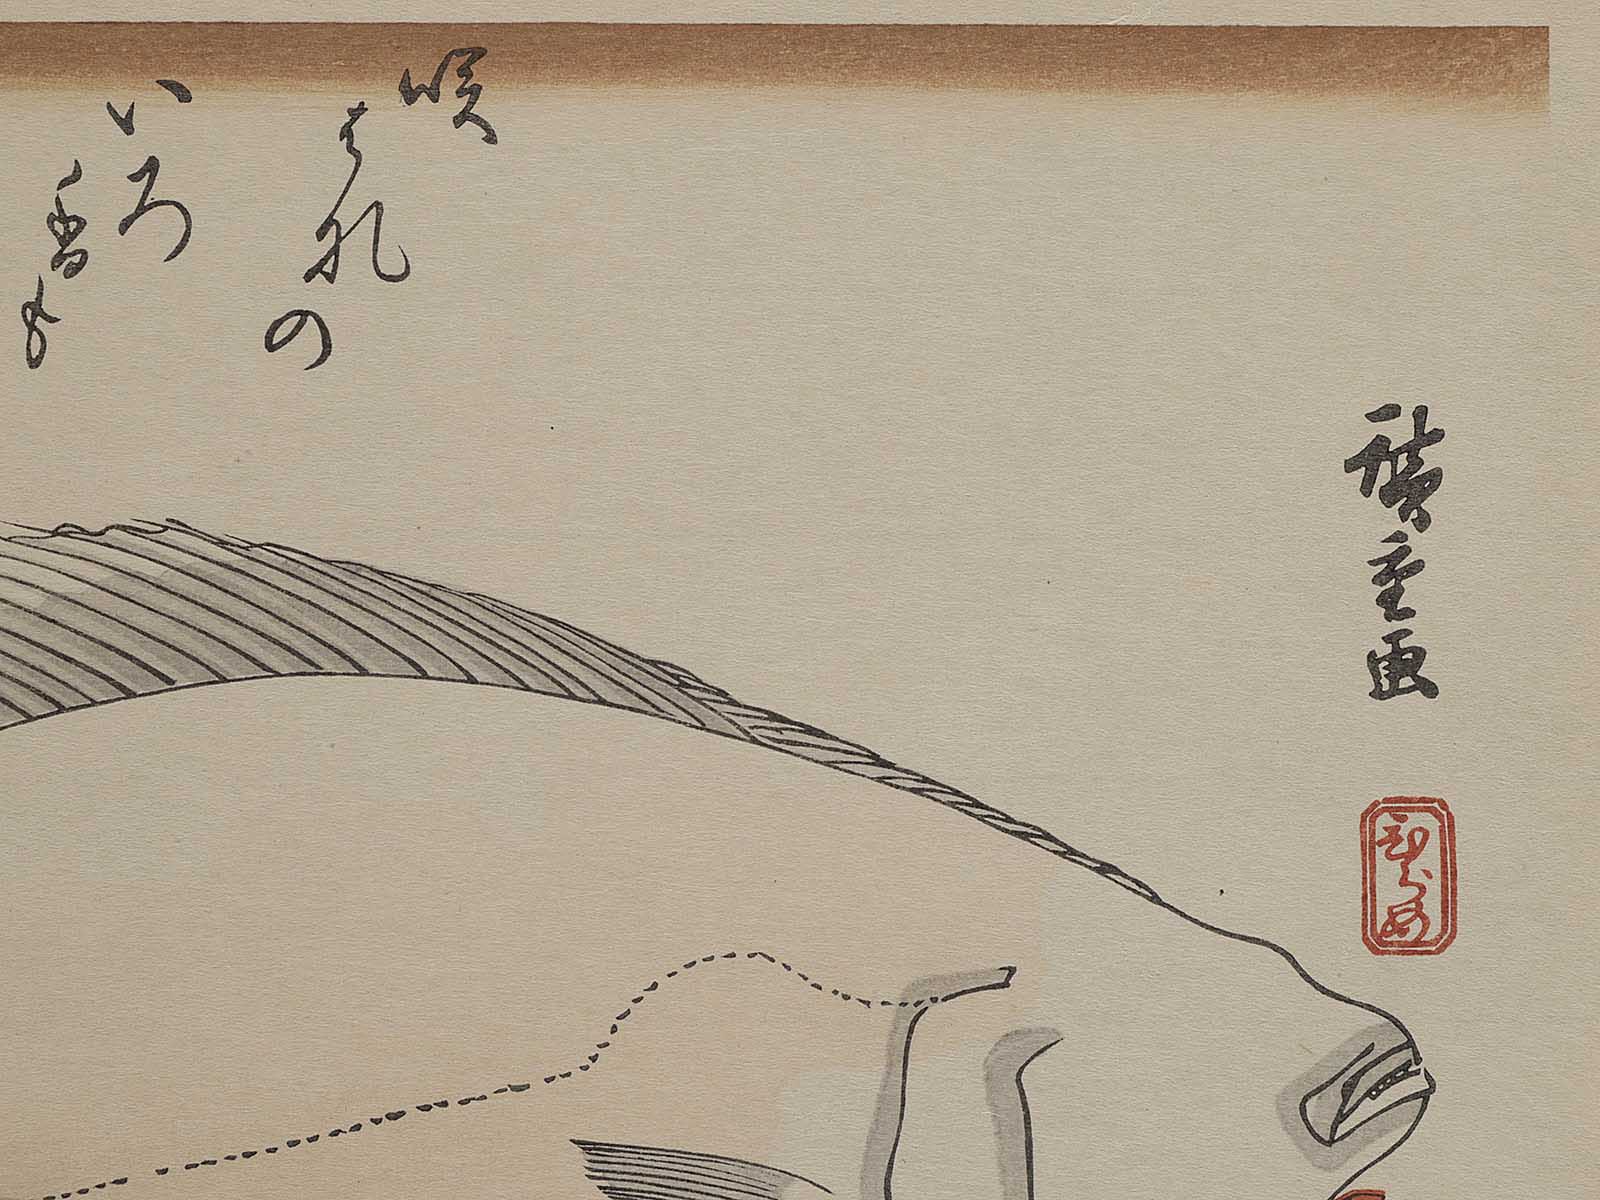 咲
はれの
いろ
香も
廣重画